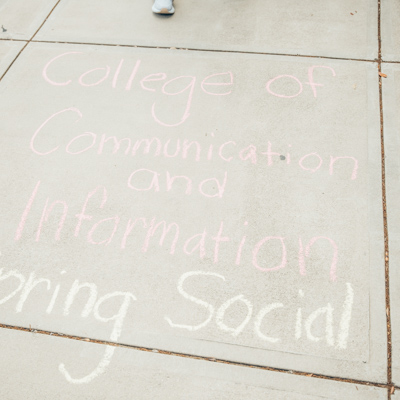 College of
Communication
and
Information
Social